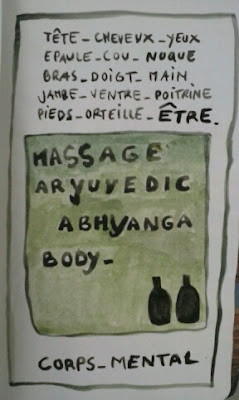 TÊTE_CHEVEUX_YEUX
EPAULE_COU_NUQUE
BRAS_DOIGT_MAIN
JAMBE_VENTRE_POITRINE
PIEDS_ORTEILLE_ÊTRE.
MASSAGE
ARYUVEDIC
ABHYANGA
BODY_
CORPS_MENTAL